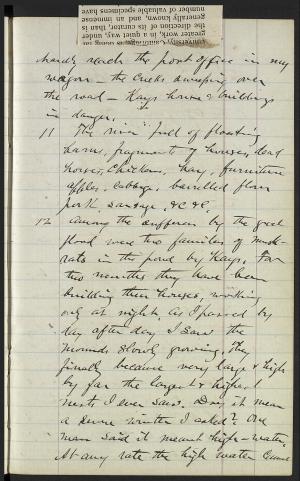 university
greater work in a quiet way, under
the direction of its curator, than is
generally known, and an immense
number of valuable specimens have
hardly reach the post office in my
wagon – the Creeks sweeping over
the road – Kays house & buildings
in danger.
11 The river full of floating
barns, fragments of houses, dead
horses, Chickens, hay, furniture
apples, cabbage, barrelled flour
pork, sausage, &c &c.
12 Among the sufferers by the great
flood were two families of musk-
rats in the pond by Kays. For
two months they have been
building their houses, working
only at night, as I passed by
day after day I saw the
mounds slowly growing. They
finally became very large & high
by far the largest & highest
nests I ever saw. Does it mean
a severe winter I asked? One
man said it meant high-water.
At any rate the high water came